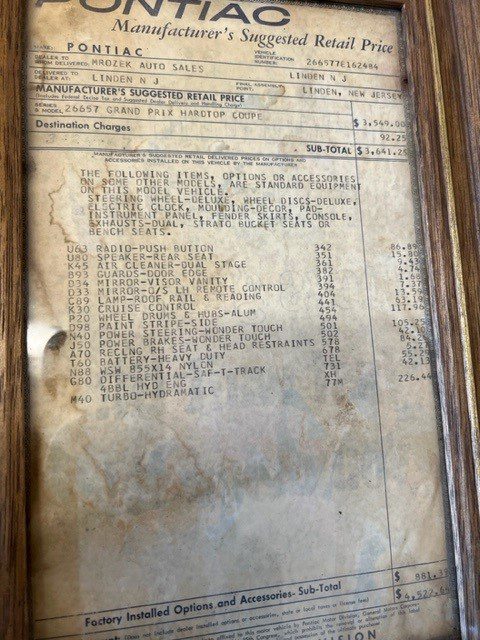 PONTIAC
Manufacturer's Suggested Retail Price
MAKE: PONTIAC VEHICLE IDENTIFICATION NUMBER: 266577E162484
DEALER TO WHOM DELIVERED: MROZEK AUTO SALES LINDEN N J
DELIVERED TO DEALER AT: LINDEN N J FINAL ASSEMBLY POINT: LINDEN, NEW JERSEY
MANUFACTURER'S SUGGESTED RETAIL PRICE
(Includes Federal Excise Tax and Suggested Dealer Delivery and Handling Charge)
SERIES & MODEL 26657 GRAND PRIX HARDTOP COUPE $ 3,549.00
Destination Charges 92.25
SUB-TOTAL $ 3,641.25
MANUFACTURER'S SUGGESTED RETAIL DELIVERED PRICES ON OPTIONS AND
ACCESSORIES INSTALLED ON THIS VEHICLE BY THE MANUFACTURER
THE FOLLOWING ITEMS, OPTIONS OR ACCESSORIES
ON SOME OTHER MODELS, ARE STANDARD EQUIPMENT
ON THIS MODEL VEHICLE.
STEERING WHEEL-DELUXE, WHEEL DISCS-DELUXE,
ELECTRIC CLOCK, MOULDING-DECOR, PAD-
INSTRUMENT PANEL, FENDER SKIRTS, CONSOLE,
EXHAUSTS-DUAL, STRATO BUCKET SEATS OR
BENCH SEATS.
U63 RADIO-PUSH BUTTON 342 86.89
U80 SPEAKER-REAR SEAT 351 15.80
K45 AIR CLEANER-DUAL STAGE 361 9.43
B93 GUARDS-DOOR EDGE 382 4.74
D34 MIRROR-VISOR VANITY 391
D33 MIRROR-O/S LH REMOTE CONTROL 394 7.37
C89 LAMP-ROOF RAIL & READING 404
K30 CRUISE CONTROL 441 63.19
P20 WHEEL DRUMS & HUBS-ALUM 454 117.96
D98 PAINT STRIPE-SIDE 494
N40 POWER STEERING-WONDER TOUCH 501 105.25
J50 POWER BRAKES-WONDER TOUCH 502
A70 RECLNG RH SEAT & HEAD RESTRAINTS 578
T60 BATTERY-HEAVY DUTY 678
N88 WSW 855X14 NYLON TEL 55.29
G80 DIFFERENTIAL-SAF-T-TRACK 731 42.13
4BBL HYD ENG XH
M40 TURBO-HYDRAMATIC 77M 226.44
Factory Installed Options and Accessories- Sub-Total $ 881.
$ 4,522.